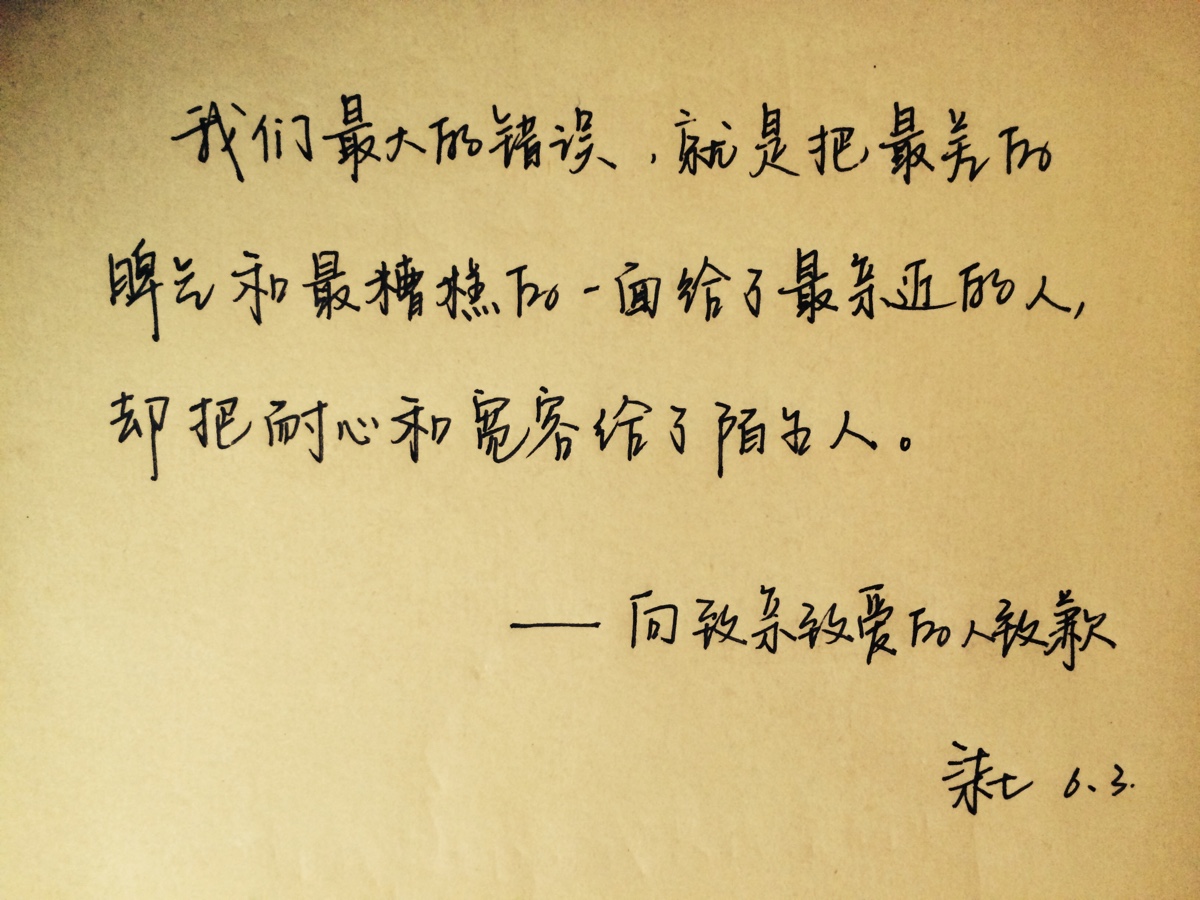 我们最大的错误,就是把最差的
脾气和最糟糕的一面给了最亲近的人,
却把耐心和宽容给了陌生人。
——向致亲致爱的人致歉
6.3.